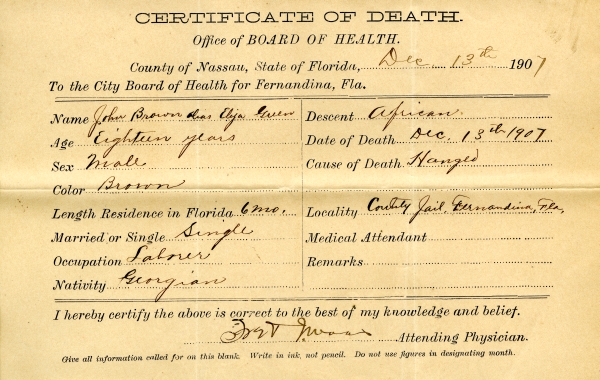 CERTIFICATE OF DEATH.
Office of BOARD OF HEALTH.
County of Nassau, State of Florida, Dec. 13th 1907
To the City Board of Health for Fernandina, Fla.
Name John Brown alias Green
Age Eighteen years
Sex Male
Color Brown
Length Residence in Florida 6 mo.
Married or Single Single
Occupation Laborer
Nativity Georgian
Descent African
Date of Death Dec. 13th 1907
Cause of Death Hanged
Locality County Jail, Fernandina, Fla,
Medical Attendant
Remarks
I hereby certify the above is correct to the best of my knowledge and belief.
Attending Physician.
Give all information called for on this blank. Write in ink, not pencil. Do not use figures in designating month.